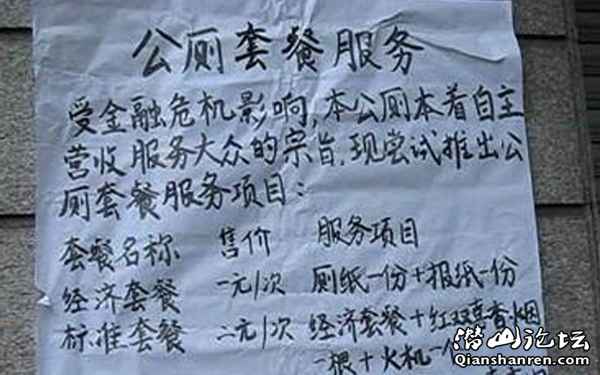 公厕套餐服务
受金融危机影响,本公厕本着自主
营收服务大众的宗旨,现尝试推出公
厕套餐服务项目:
套餐名称 售价 服务项目
经济套餐 一元/次 厕纸一份+报纸一份
标准套餐 二元/次 经济套餐+红双喜香烟
一根+火机一
潜山论坛
Qianshanren.com